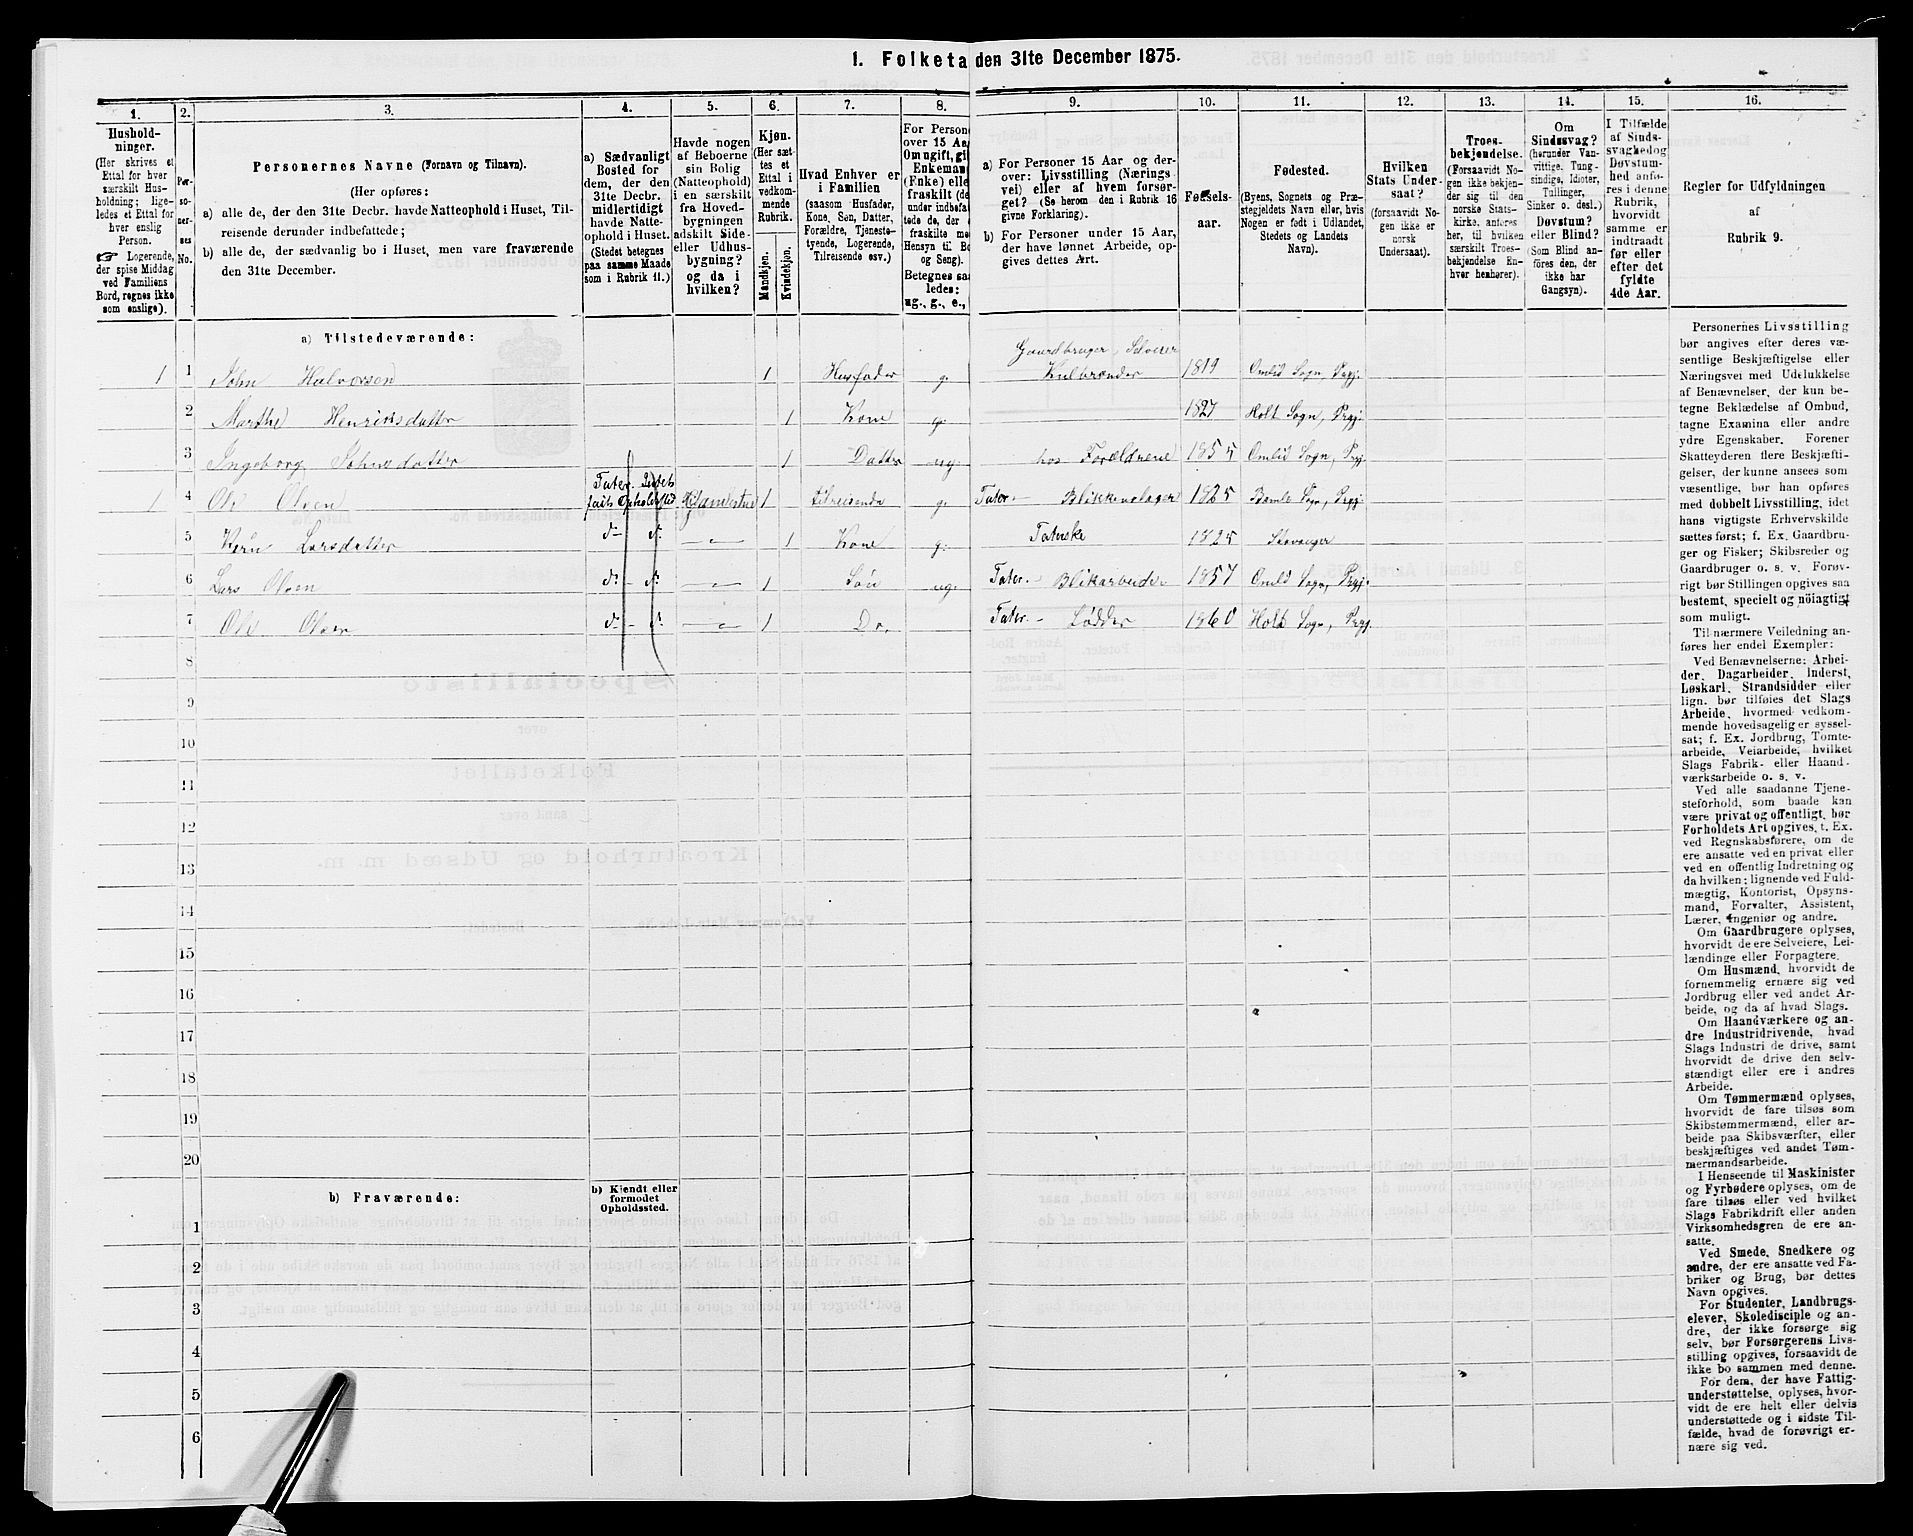 1. Folketa den 31te December 1875.
1. 2. 3. 4. 5. 6. 7. 8. 9. 10. 11. 12. 13. 14. 15. 16.
Hushold-
ninger.
(Her skrives et
Ettal for hver
særskilt Hus-
holdning; lige-
ledes et Ettal for
hver enslig
Person.
☞ Logerende,
der spise Middag
ved Familiens
Bord, regnes ikke
som enslige).
Per-
so-
ner-
nes
No.
Personernes Navne (Fornavn og Tilnavn).
(Her opføres:
a) alle de, der den 31te Decbr. havde Natteophold i Huset, Til-
reisende derunder indbefattede;
b) alle de, der sædvanlig bo i Huset, men vare fraværende
den 31te December.
a) Sædvanligt
Bosted for
dem, der den
31te Decbr.
midlertidigt
havde Natte-
ophold i Huset.
(Stedet betegnes
paa samme Maade
som i Rubrik 11.)
Havde nogen
af Beboerne
sin Bolig
(Natteophold)
i en særskilt
fra Hoved-
bygningen
adskilt Side-
eller Udhus-
bygning?
og da i
hvilken?
Kjøn.
(Her sæt-
tes et
Ettal i
vedkom-
mende
Rubrik.
Mandkjøn.
Kvindekjøn.
Hvad Enhver er
i Familien
(saasom Husfader,
Kone, Søn, Datter,
Forældre, Tjeneste-
tyende, Logerende,
Tilreisende osv.)
For Person
over 15 Aa
Om ugift, gif
Enkeman
(Enke) elle
fraskilt (de
under indbefat
tede de, der e
fraskilte m
Hensyn til Bo
og Seng).
Betegnes saa
ledes:
ug., g., e.,
a) For Personer 15 Aar og der-
over: Livsstilling (Nærings
vei) eller af hvem forsør-
get? (Se herom den i Rubrik 16
givne Forklaring).
b) For Personer under 15 Aar,
der have lønnet Arbeide, op-
gives dettes Art.
Fødsels-
aar.
Fødested.
(Byens, Sognets og Præ-
stegjeldets Navn eller, hvis
Nogen er født i Udlandet,
Stedets og Landets
Navn).
Hvilken
Stats Under-
saat?
(forsaavidt No-
gen ikke er
norsk
Undersaat).
Troes-
bekjendelse.
(Forsaavidt No-
gen ikke bekjen-
der sig til den
norske Stats-
kirke, anføres
her, til hvilken
særskilt Troes-
bekjendelse En-
hver henhører).
Om
Sindssvag?
(herunder Van-
vittige, Tung-
sindige, Idioter,
Tullinger,
Sinker o. desl.)
Døvstum?
eller Blind?
(Som Blind an-
føres den, der
ikke har
Gangsyn).
I Tilfælde
af Sinds-
svaghed og
Døvstum-
hed anfø-
res i denne
Rubrik,
hvorvidt
samme er
indtraadt
før eller
efter det
fyldte
4de Aar.
Regler for Udfyldningen
af
Rubrik 9.
a) Tilstedeværende:
Gaardbruger, Selveier
1 1 John Halvorsen 1 Husfader g. Kulbrænder 1819 Omlid Sogn, Prgj.
2 Marthe Henriksdatter 1 Kone g. 1827 Holt Sogn, Prgj.
3 Ingeborg Johnsdatter 1 Datter ug. hos Forældrene 1854 Omlid Sogn, Prgj.
1 4 Ole Olsen Tater. Intet fast Opholdssted 1 tilreisende g. Tater. - Blikkenslager 1825 Bamle Sogn, Prgj.
5 Larsdatter d- d. 1 Kone g. Taterske 1825 Stavanger
6 Lars Olsen d. - d. 1 Søn ug. Tater. - Blikarbeider 1857 Omlid Sogn, Prgj.
7 Ole Olsen d. - d. 1 Do. Tater. - Lodder 1860 Holt Sogn, Prgj.
8
9
10
11
12
13
14
15
16
17
18
19
20
b) Fraværende:
b) Kjendt eller
formodet
Opholdssted.
1
2
3
4
5
6
Personernes Livsstilling
bør angives efter deres væ-
sentlige Beskjæftigelse eller
Næringsvei med Udelukkelse
af Benævnelser, der kun be-
tegne Beklædelse af Ombud,
tagne Examina eller andre
ydre Egenskaber. Forener
Skatteyderen flere Beskjæfti-
gelser, der kunne ansees som
væsentlige, bør han opføres
med dobbelt Livsstilling, idet
hans vigtigste Erhvervskilde
sættes først; f. Ex. Gaardbru-
ger og Fisker; Skibsreder og
Gaardbruger o. s. v. Forøv-
rigt bør Stillingen opgives saa
bestemt, specielt og nöiagtigt
som muligt.
Til nærmere Veiledning an-
føres her endel Exempler:
Ved Benævnelserne: Arbei-
der, Dagarbeider, Inderst,
Løskarl, Strandsidder eller
lign. bør tilføies det Slags
Arbeide, hvormed vedkom-
mende hovedsagelig er syssel-
sat; f. Ex. Jordbrug, Tomte-
arbeide, Veiarbeide, hvilket
Slags Fabrik- eller Haand-
værksarbeide o. s. v.
Ved alle saadanne Tjene-
steforhold, som baade kan
være privat og offentligt, bør
Forholdets Art opgives, t. Ex.
ved Regnskabsførere, om de
ere ansatte ved en privat eller
ved en offentlig Indretning og
da hvilken; lignende ved Fuld-
mægtig, Kontorist, Opsyns-
mand, Forvalter, Assistent,
Lærer, Ingeniør og andre.
Om Gaardbrugere oplyses,
hvorvidt de ere Selveiere, Lei-
lændinge eller Forpagtere.
Om Husmænd, hvorvidt de
fornemmelig ernære sig ved
Jordbrug eller ved andet Ar-
beide, og da af hvad Slags.
Om Haandværkere og an-
dre Industridrivende, hvad
Slags Industri de drive, samt
hvorvidt de drive den selv-
stændigt eller ere i andres
Arbeide.
Om Tømmermænd oplyses,
hvorvidt de fare tilsøs som
Skibstømmermænd, eller ar-
beide paa Skibsværfter, eller
beskjæftiges ved andet Tøm-
mermandsarbeide.
I Henseende til Maskinister
og Fyrbødere oplyses, om de
fare tilsøs eller ved hvilket
Slags Fabrikdrift eller anden
Virksomhedsgren de ere an-
satte.
Ved Smede, Snedkere og
andre, der ere ansatte ved Fa-
briker og Brug, bør dettes
Navn opgives.
For Studenter, Landbrugs-
elever, Skoledisciple og an-
dre, der ikke forsørge sig
selv, bør Forsørgerens Livs-
stilling opgives, forsaavidt de
ikke bo sammen med denne.
For dem, der have Fattig-
understøttelse, oplyses, hvor-
vidt de ere helt eller delvis
understøttede og i sidste Til-
fælde, hvad de forøvrigt er-
nære sig ved.